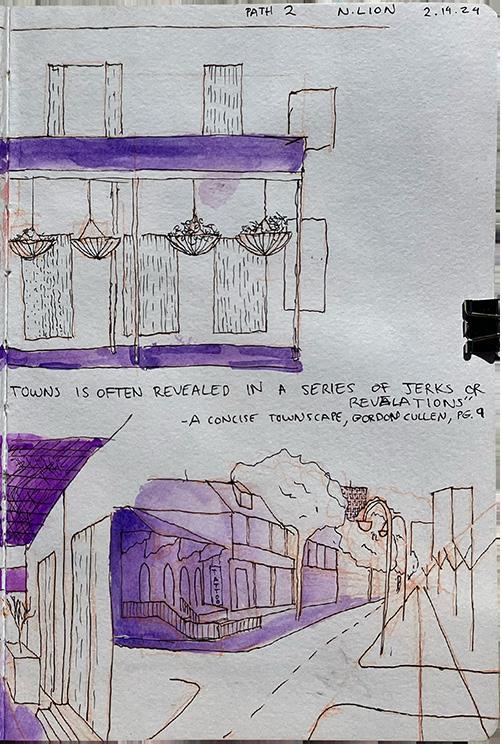 PATH 2 N.LION 2.19.24
TOWNS IS OFTEN REVEALED IN A SERIES OF JERKS OR
REVELATIONS"
-A CONCISE TOWNSCAPE, GORDON CULLEN, PG. 9
TATTOO